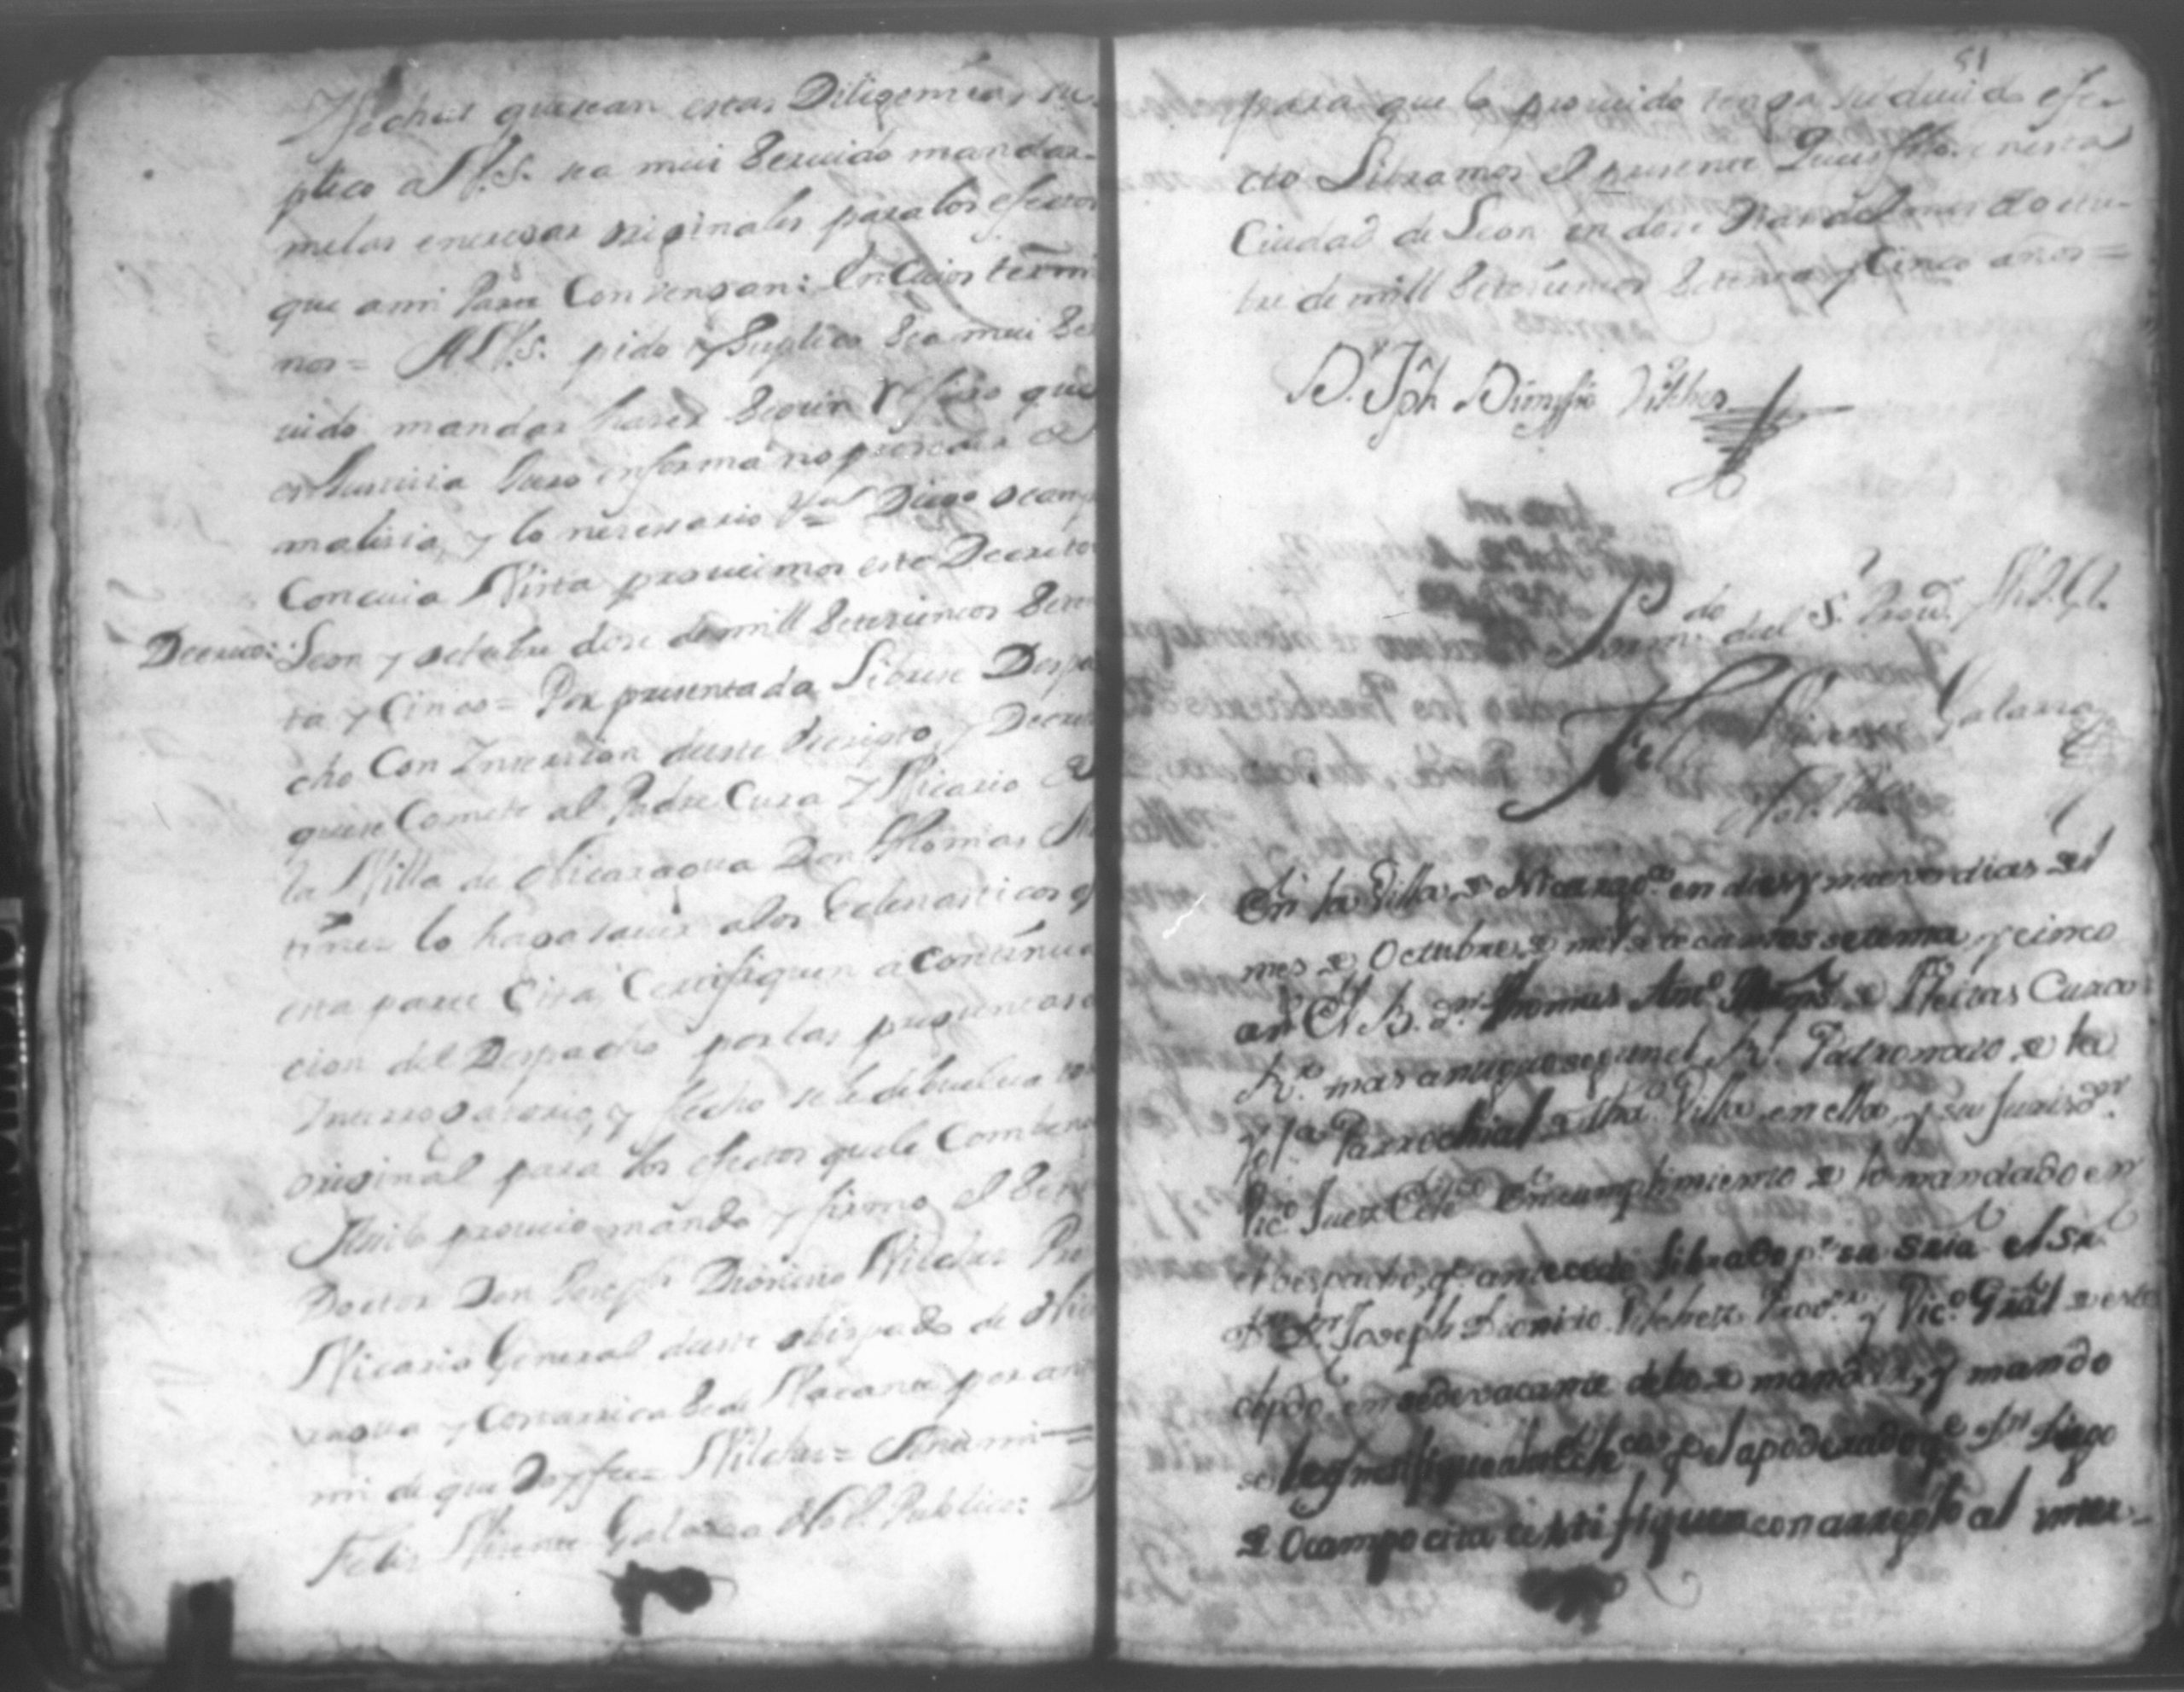 Y fechas que sean estas Diligencias su-
plico a V.S. sea mui Seruido mandar-
melas entregar originales para los efectos
que a mi Parte Convengan: En Cuios termi
nos = A V.S. pido y Suplico Sea mui Ser
uido mandar hacer Segun refiero que
es Justicia Juro en forma no proceder de
malicia, y lo necesario Va Diego Ocamp
Con cuia Vista proueimos este Decreto
Decreto: Leon y octubre dose de mill Setesientos Seten
ta y Cinco = Por presentada Librese Despa
cho Con Insersion deeste Escripto, y Decret
que se Comete al Padre Cura Y Vicario de
la Villa de Nicaragua Don Thomas
lo haga sauer a los Eclesiasticos q
esta parte Cita, Certifiquen a Continua
cion del Despacho por las preguntas d
Interrogatorio, y fecho se le debuelva
original para los efectos que le Combena
Asi lo proueio mando y firmo el Señ
Doctor Don Joseph Dionicio Vilches Pro
Vicario General deeste obispado de Nica
ragua y Costarrica Sede Vacante por ante
mi de que Doy fee = Vilches = Ante mi =
Felis Vicente Galarza Not. Publico:
51
para que lo proueido tenga su deuido efe-
cto Libramos el presente Que es fho. en esta
Ciudad de Leon en dose Dias del mes de octu-
bre de mill Setesientos Setenta y Cinco años =
Dr. Jph Dionysio Vilches
Por mdo. del Sr. Prov. Vic. Gl.
Felis Vicente Galarza
Not.
En la Villa de Nicarago. en dies y nueve dias del
mes de Octubre de mil setecientos setenta y cinco
as. El B. Dn. Thomas Anto. de Cura
Ro. mas antiguo segun el Rl. Patronato de la
Ygla. Parrochial de dha. Villa en ella, y su Jurisdn.
Vico. Juez Ecco. En cumplimiento de lo mandado en
el despacho, qe. antecede librado pr. su Sria. el Sr.
Dr. Dn. Joseph Dionicio Vilches Provr. y Vico. Gral de este
obpdo. en sedevacante debo de mandar, y mando
se les notifique a los por el apoderado qe. Dn. Diego
de Ocampo cita certifiquen con arreglo al inter-